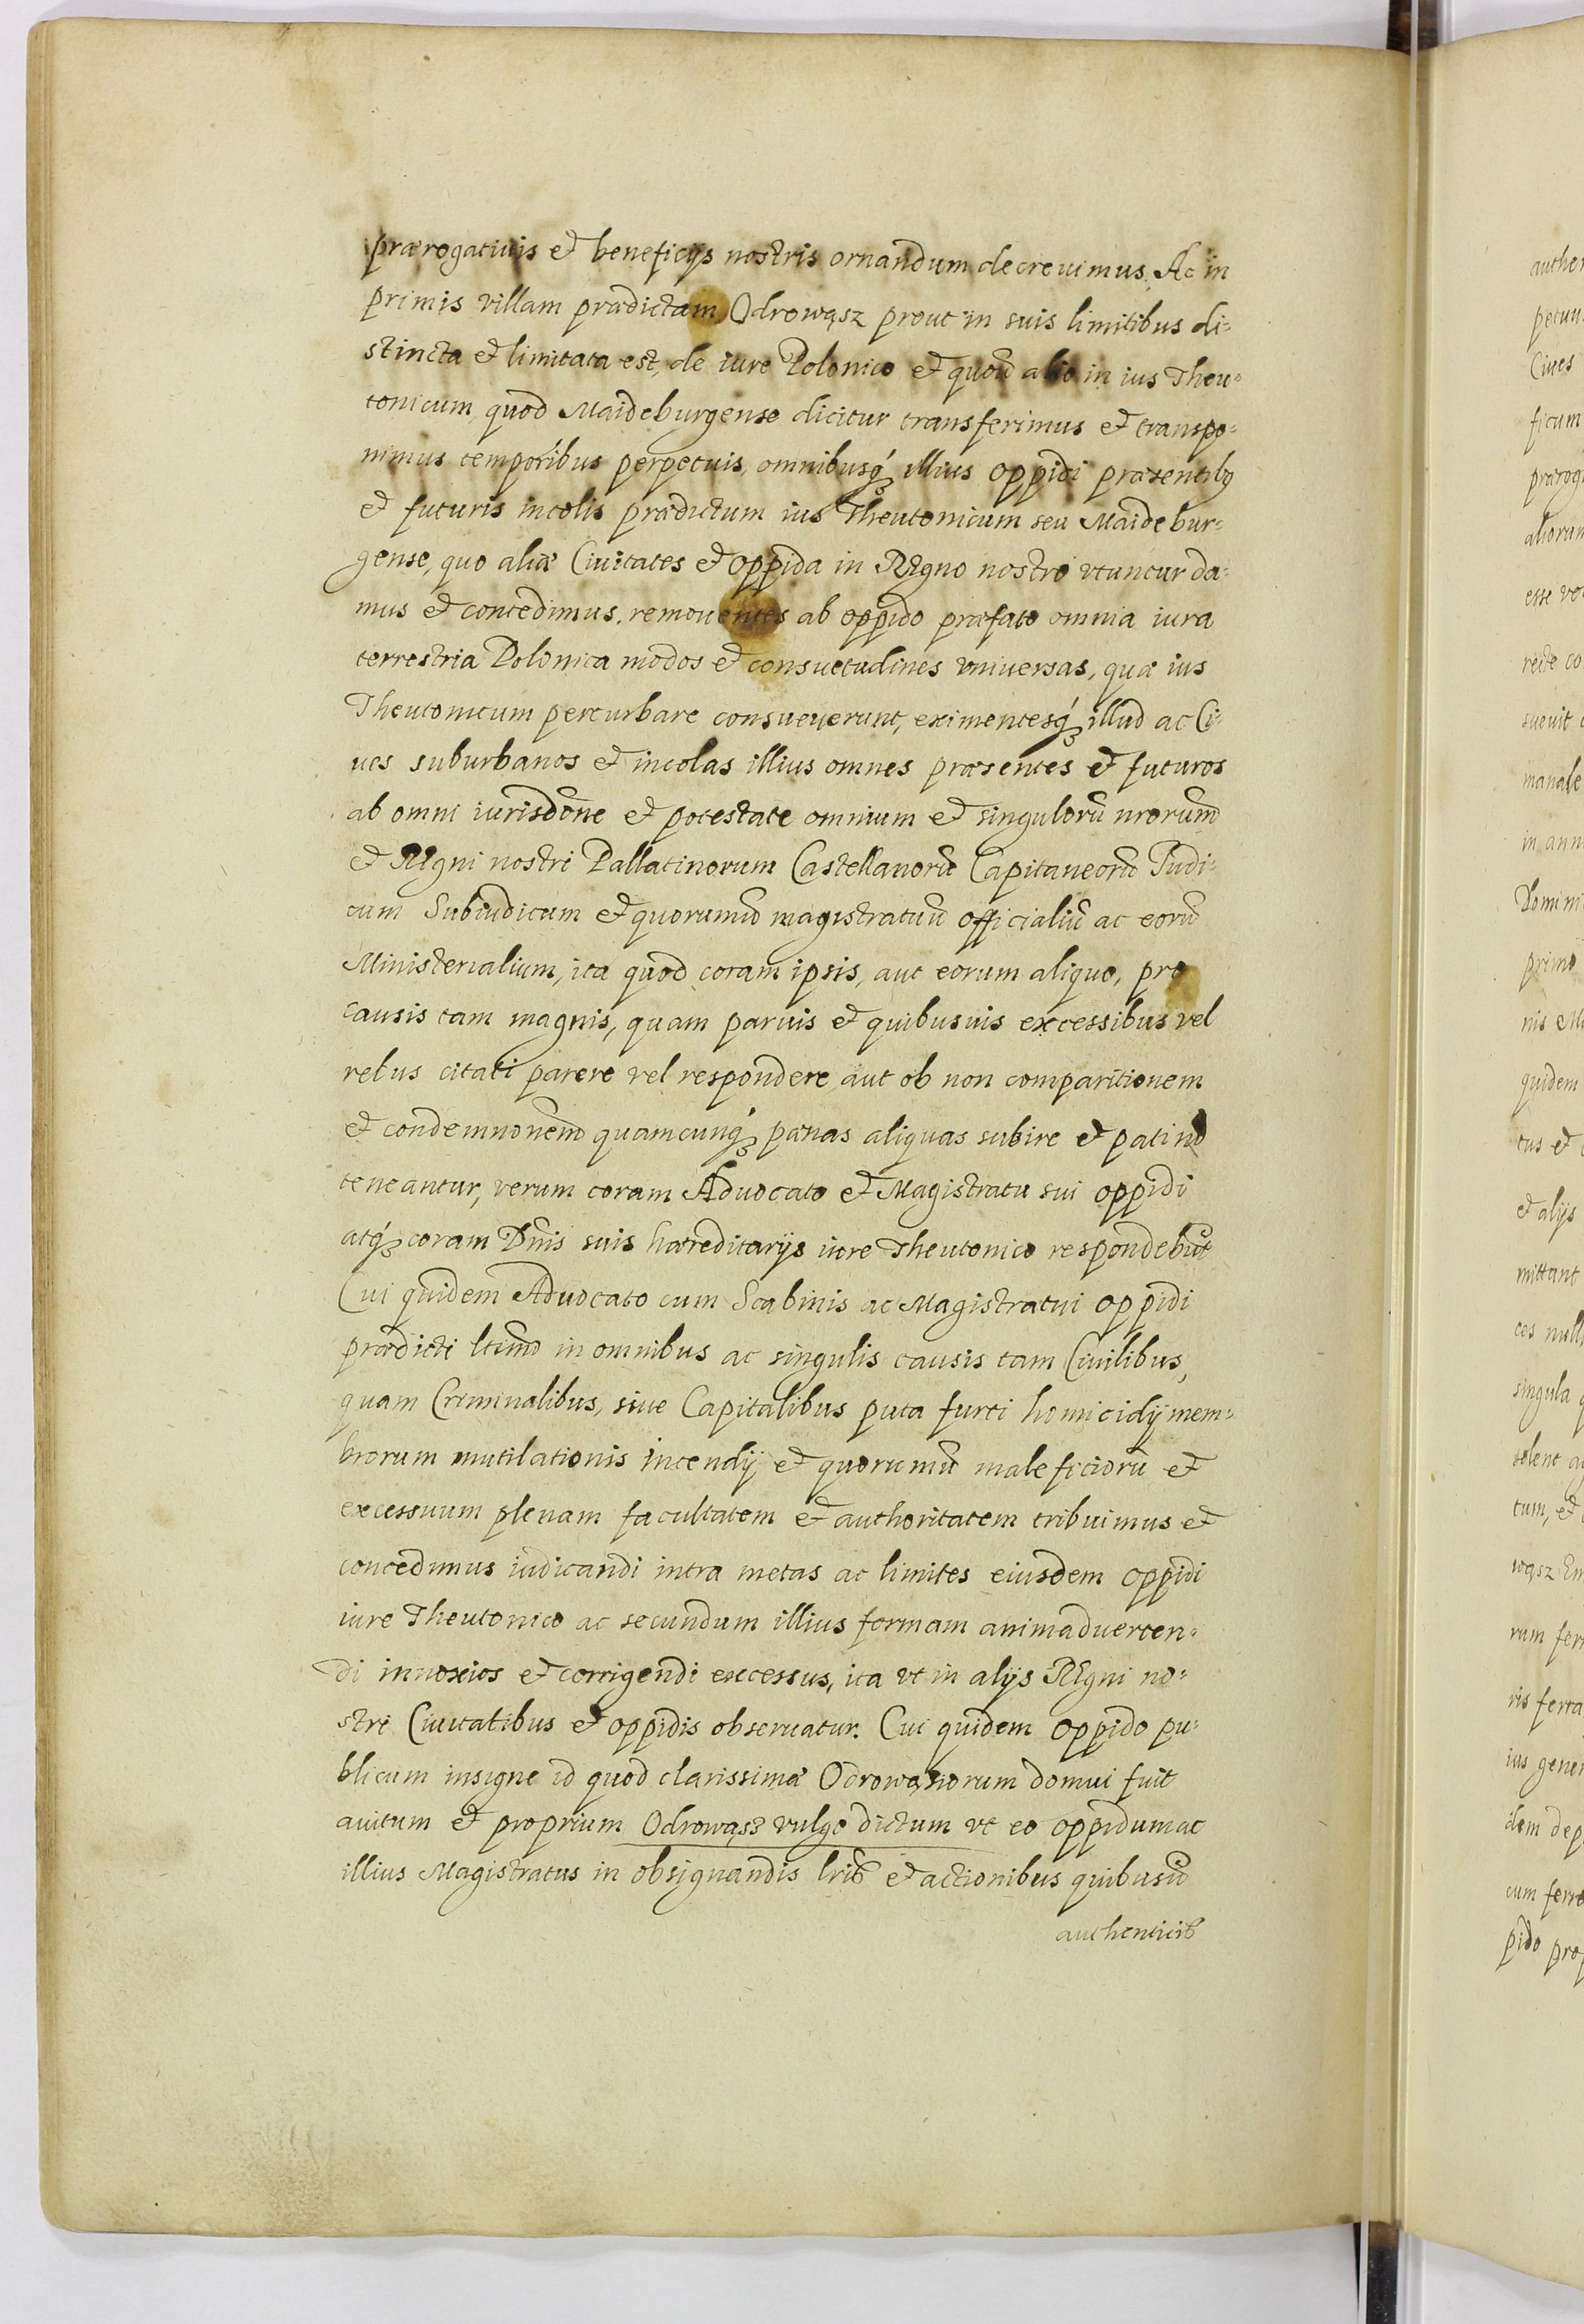 prærogatiuis et beneficijs nostris ornandum decreuimus. Ac in
primis villam prædictam Odrowąsz prout in suis limitibus di=
stincta et limitata est, de iure Polonico et quouis alio in ius Theu=
tonicum quod Maideburgense dicitur transferimus et transpo=
nimus temporibus perpetuis, omnibusq́ꝫ illius oppidi præsentibꝫ
et futuris incolis prædictum ius Theutonicum seu Maidebur=
gense, quo aliæ Ciuitates et oppida in Regno nostro vtuntur da=
mus et concedimus. remouentes ab oppido præfato omnia iura
terrestria Polonica modos et consuetudines vniuersas, quæ ius
Theutonicum perturbare consueuerunt, eximentesq́ꝫ illud ac Ci=
ues suburbanos et incolas illius omnes præsentes et futuros
ab omni iurisdõne et potestate omnium et singulorũ nrorum
et Regni nostri Pallatinorum Castellanorũ Capitaneorũ Iudi=
cum Subiudicum et quorumuis magistratuũ officialiũ ac eorũ
Ministerialium, ita quod coram ipsis, aut eorum aliquo, pro
causis tam magnis, quam paruis et quibusuis excessibus vel
rebus citati parere vel respondere aut ob non comparitionem
et condemnonem quamcunq́ꝫ pænas aliquas subire et pati nõ
teneantur, verum coram Aduocato et Magistratu sui oppidi
atq́ꝫ coram Dñis suis hæreditarijs iure Theutonico respondebũt
Cui quidem Aduocato cum Scabinis ac Magistratui oppidi
prædicti in omnibus ac singulis causis tam Ciuilibus,
quam Criminalibus, siue Capitalibus puta furti homicidij mem=
brorum mutilationis incendij et quorumuis maleficiorũ et
excessuum plenam facultatem et authoritatem tribuimus et
concedimus iudicandi intra metas ac limites eiusdem oppidi
iure Theutonico ac secundum illius formam animaduerten=
di in noxios et corrigendi excessus, ita vt in alijs Regni no=
stri Ciuitatibus et oppidis obseruatur. Cui quidem oppido pu=
blicum insigne id quod clarissimæ Odrowąsiorum domui fuit
auitum et proprium Odrowąsz vulgo dictum vt eo oppidum ac
illius Magistratus in obsignandis lrib et actionibus quibusuis
authenticib